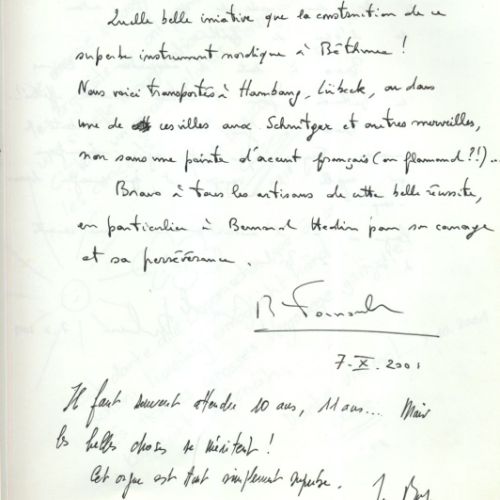 Quelle belle iniative que la construction de ce
superbe instrument nordique à Béthune !
Nous voici transportés à Hambourg, Lübeck, ou dans
une de ces villes aux Schnitger et autres merveilles,
non sans une pointe d'accent français (ou flamand ?!)...
Bravo à tous les artisans de cette belle réussite,
en particulier à Bernard Hedin pour son courage
et sa persévérance.
7.X.2001
Il faut souvent attendre 10 ans, 11 ans... Mais
les belles choses se méritent !
Cet orgue est tout simplement superbe.